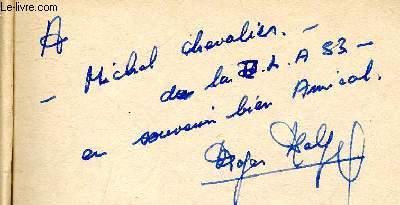 Le-livre.com
A
- Michel Chevalier. -
de la B.L.A 83 -
en souvenir bien Amical.
Roger